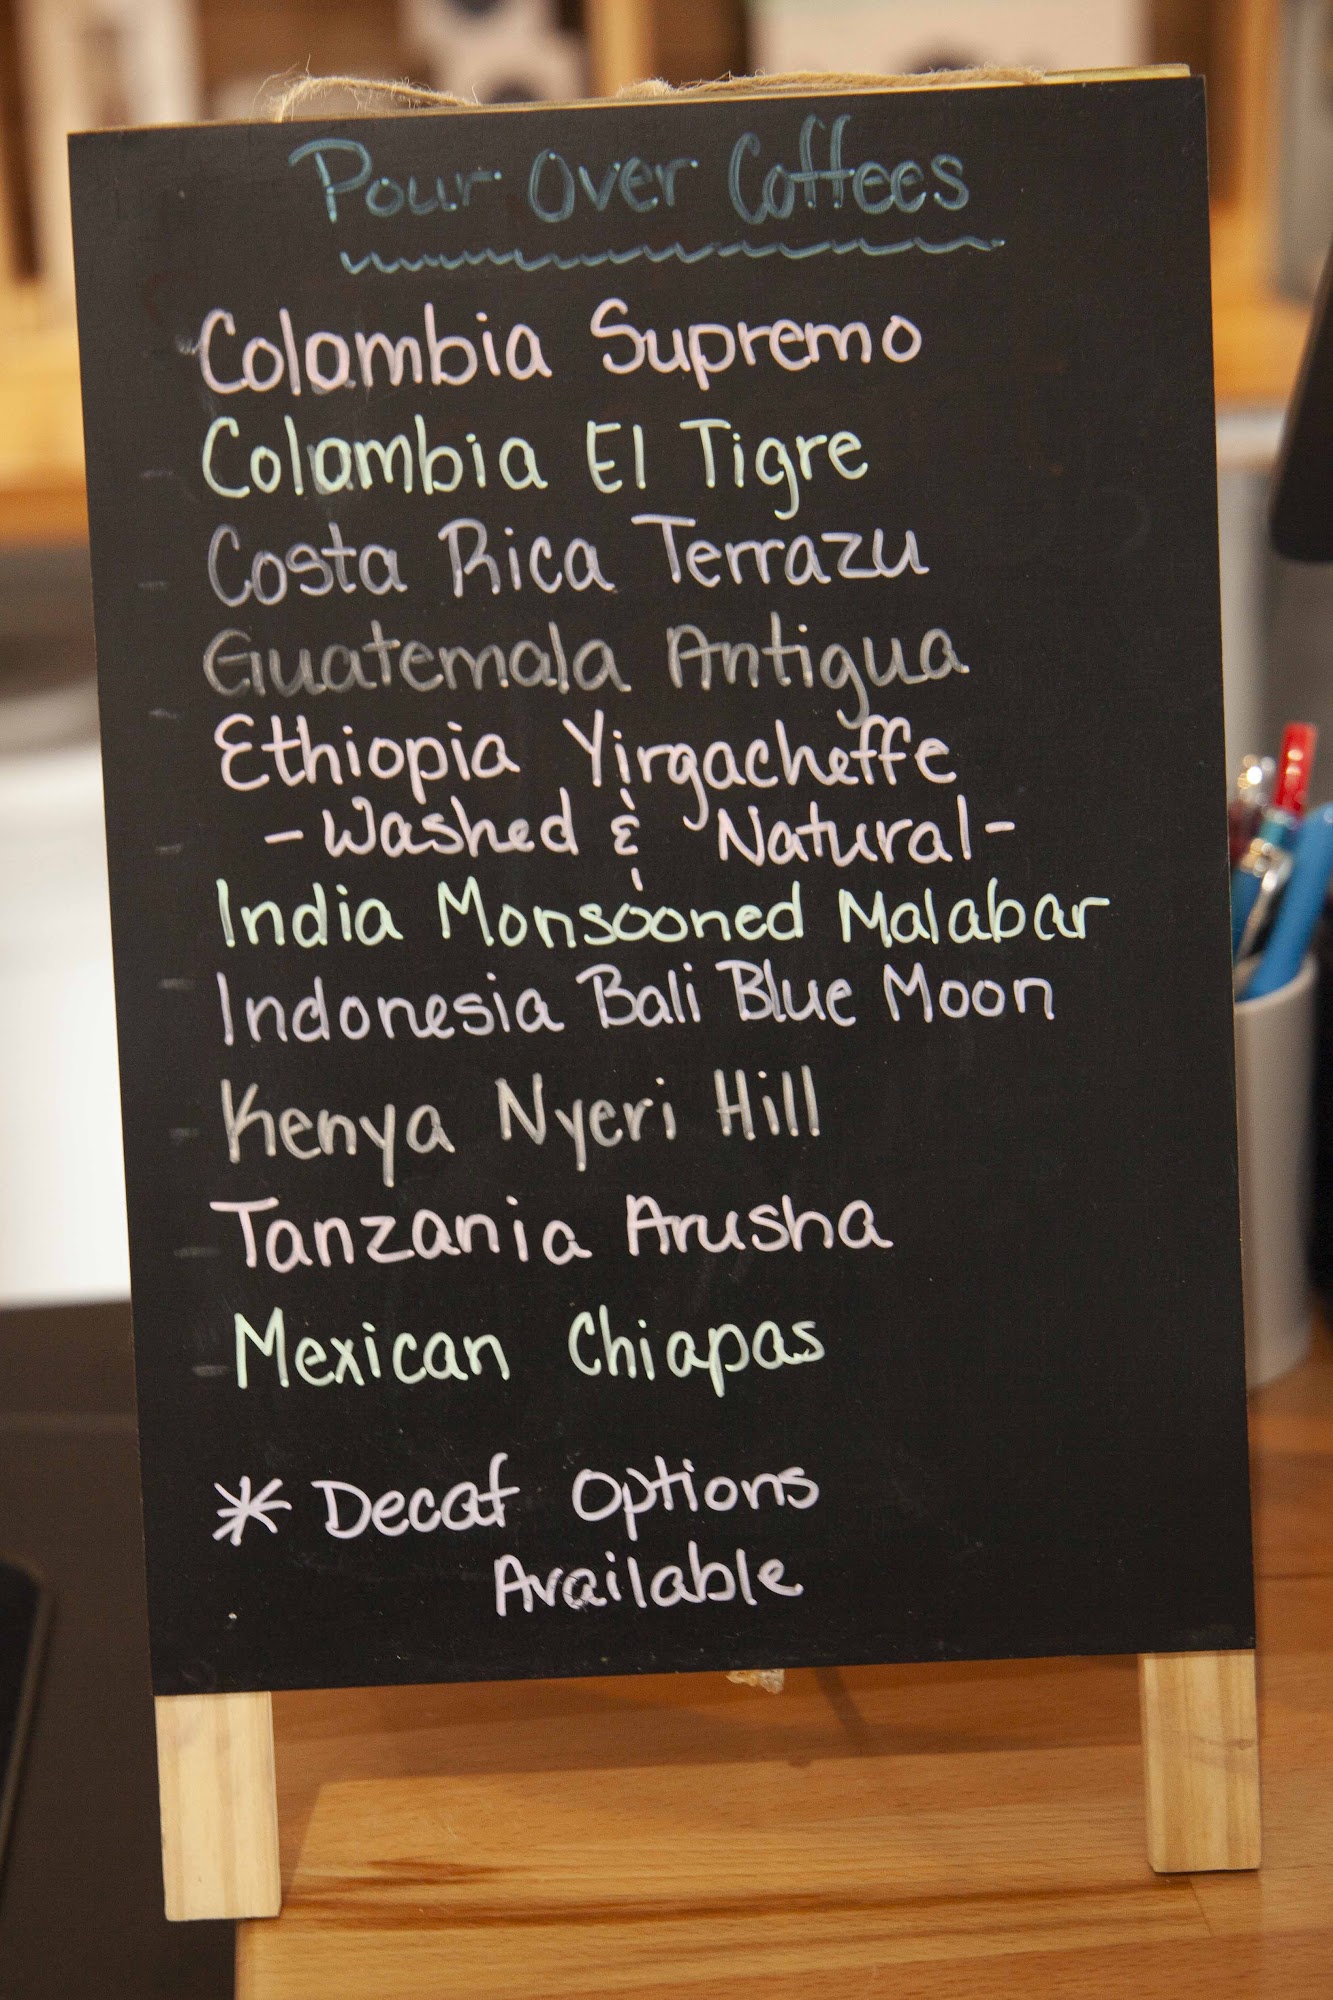 Pour Over Coffees
Colombia Supremo
Colombia El Tigre
Costa Rica Terrazu
Guatemala Antigua
Ethiopia Yirgacheffe
-Washed & Natural-
India Monsooned Malabar
Indonesia Bali Blue Moon
Kenya Nyeri Hill
Tanzania Arusha
Mexican Chiapas
* Decaf Options
Available